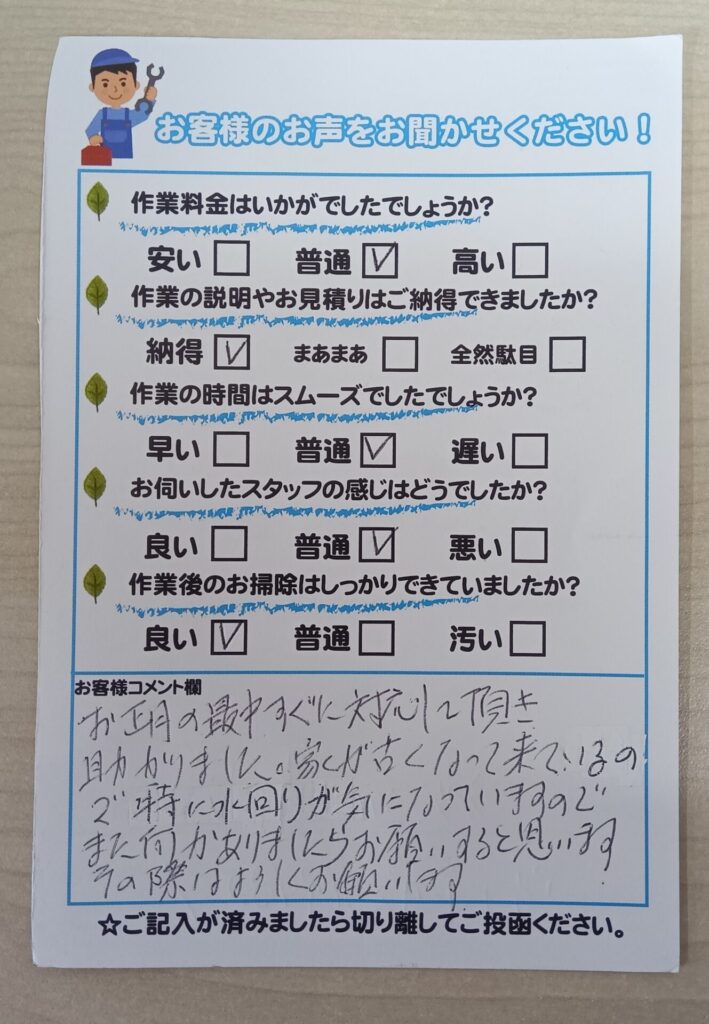 お客様のお声をお聞かせください！
作業料金はいかがでしたでしょうか?
安い□ 普通☑ 高い□
作業の説明やお見積りはご納得できましたか?
納得☑ まあまあ□ 全然駄目□
作業の時間はスムーズでしたでしょうか?
早い□ 普通☑ 遅い□
お伺いしたスタッフの感じはどうでしたか?
良い□ 普通☑ 悪い□
作業後のお掃除はしっかりできていましたか?
良い☑ 普通□ 汚い□
お客様コメント欄
お正月の最中すぐに対応して頂き
助かりました。家が古くなって来ているの
で特に水回りが気になっていますので
また何かありましたらお願いすると思います
その際はよろしくお願いします
☆ご記入が済みましたら切り離してご投函ください。